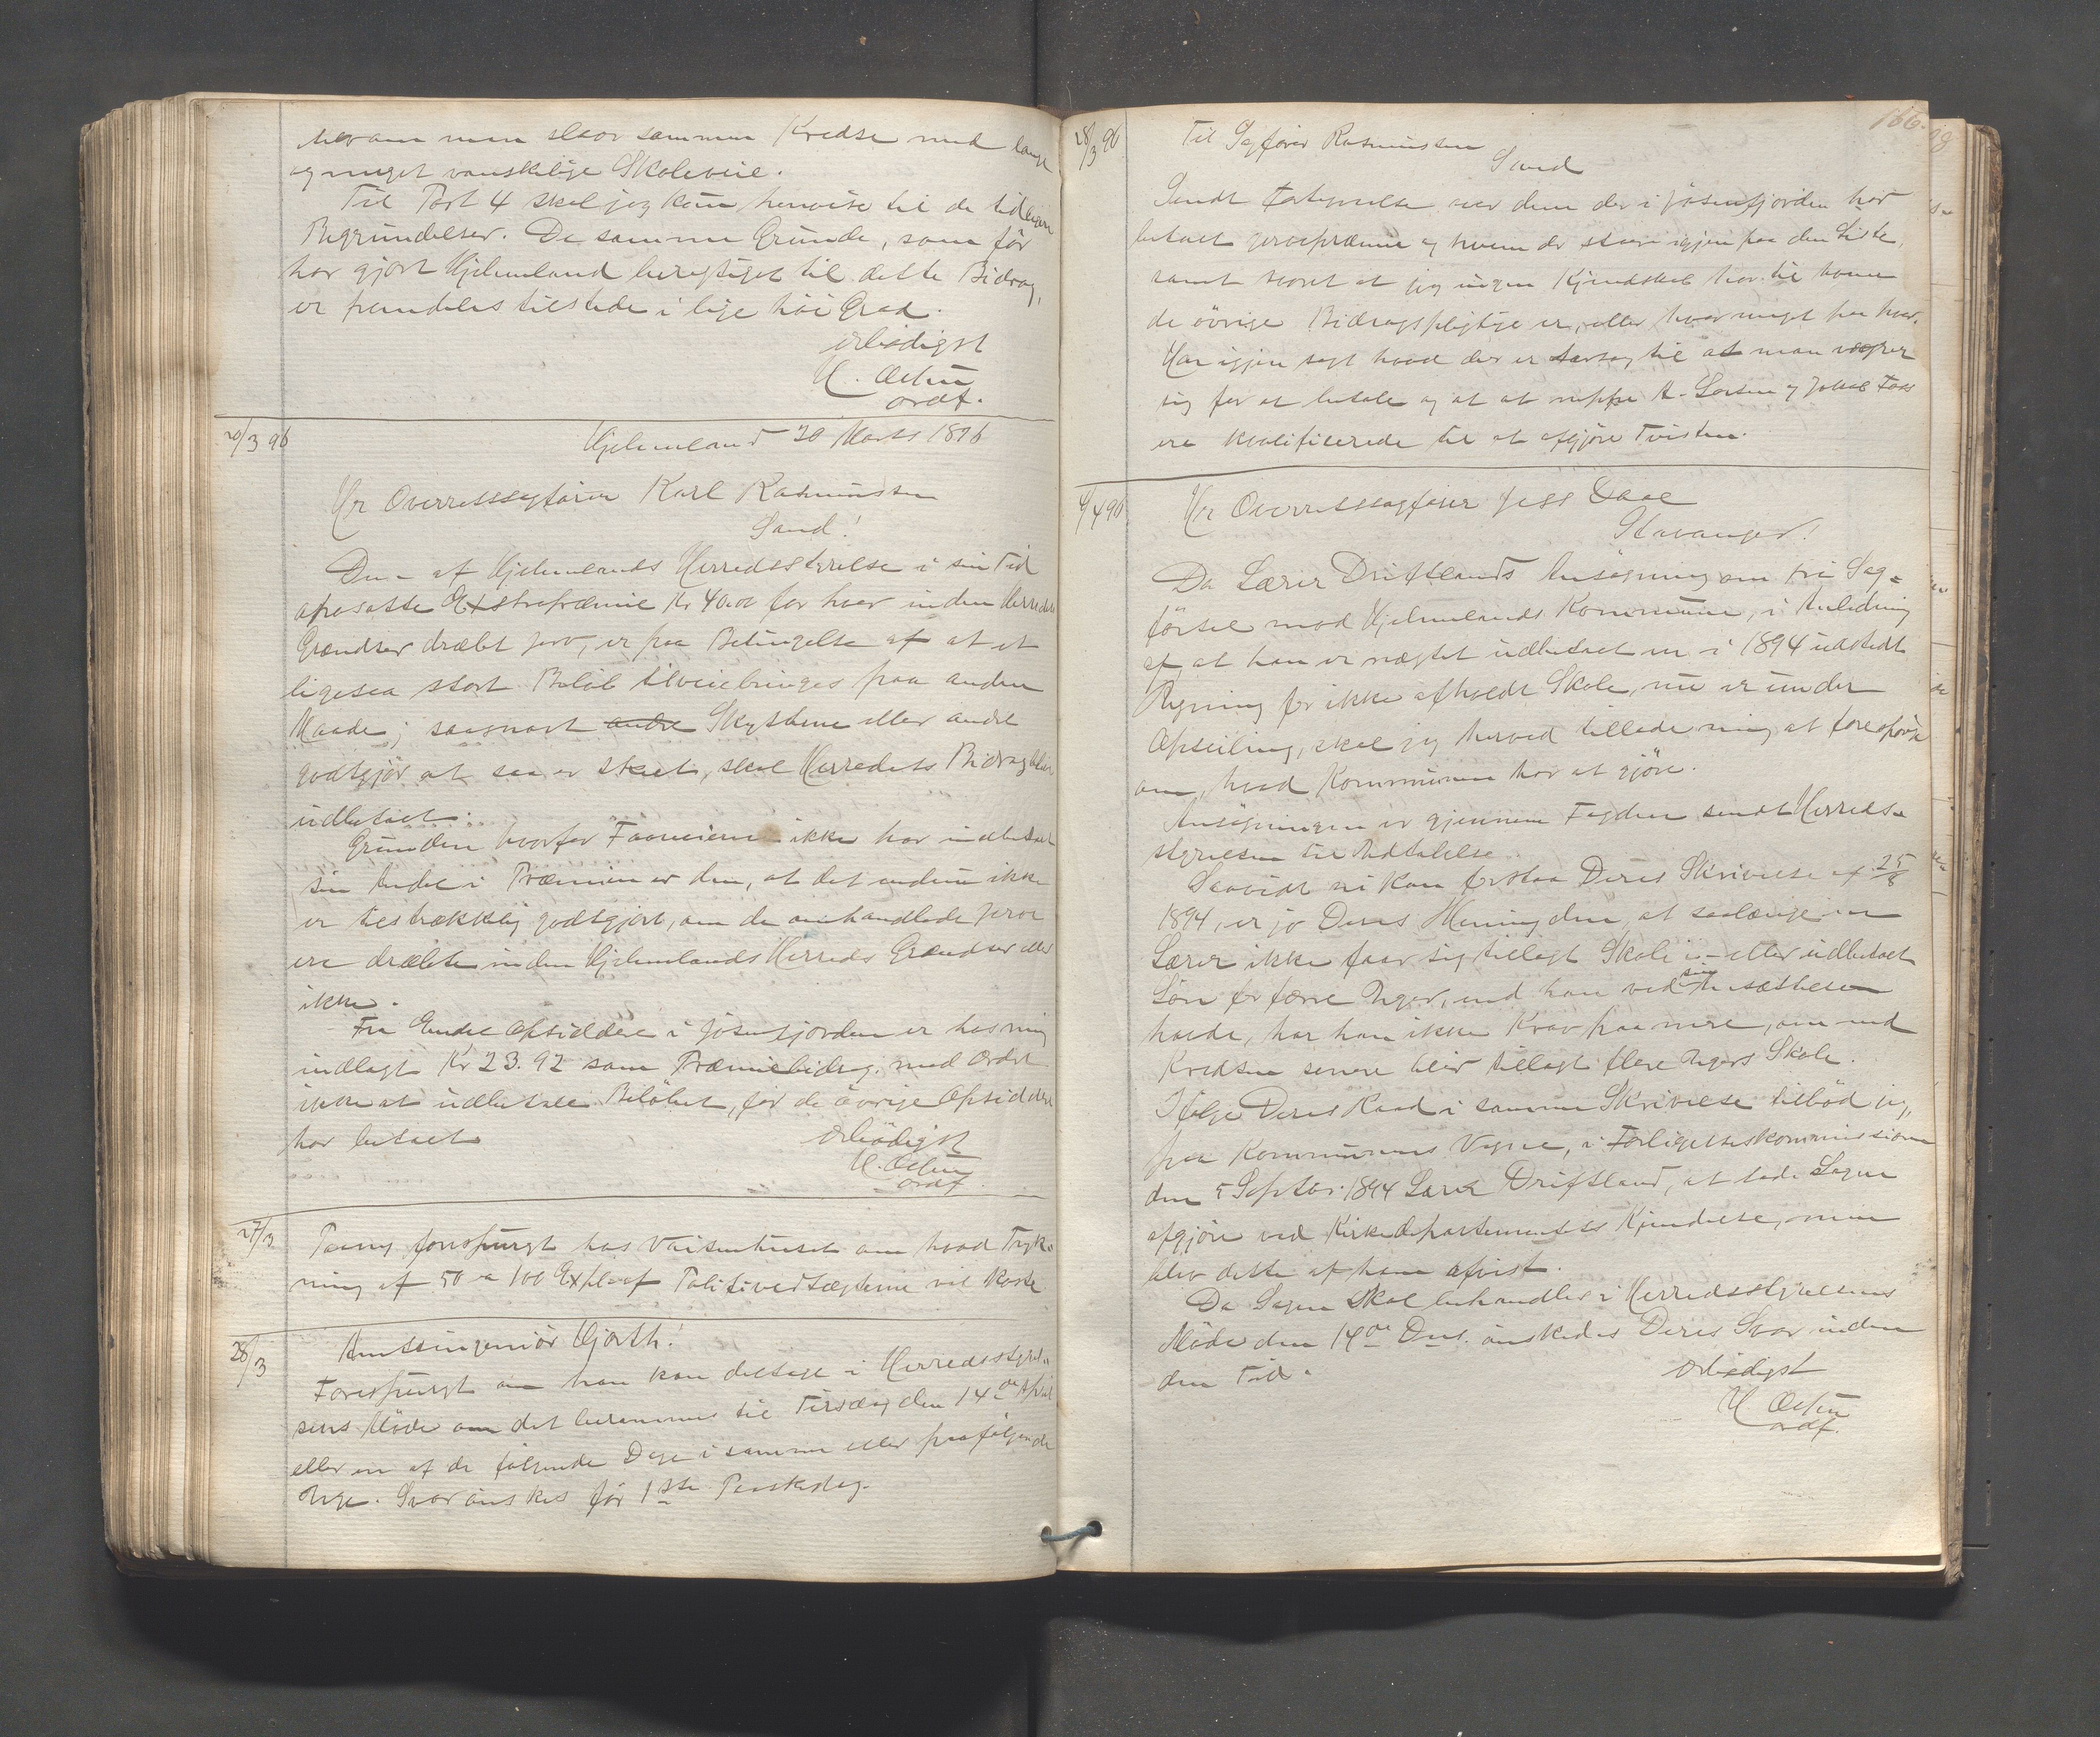 man slaar sammen Kredse med lange
og meget vanskelige Skoleveie.
Til Post 4 skal jeg kun henvise til de tidligere
Begrundelser. De samme Grunde, som før
har gjort Hjelmeland berettiget til dette Bidrag,
er fremdeles tilstede i lige høi Grad.
Ærbødigst
ordf.
20/3 96
Hjelmeland 20 Marts 1896
Hr Overretssagfører Karl Rasmussen
Sand!
Den af Hjelmelands Herredsstyrelse i sin Tid
opsatte Extrapræmie Kr 40.00 for hver inden Herredets
Grændser dræbt Jerv, er paa Betingelse af at et
ligesaa stort Beløb tilveiebringes paa anden
Maade; saasnart andre Skytterne eller andre
godtgjør at saa er skeet, skal Herredets Bidrag blive
udbetalt.
Grunden hvorfor Faareierne ikke har indbetalt
sin Andel i Præmien er den, at det endnu ikke
er tilstrækkelig godtgjort, om de omhandlede Jerve
ere dræbte inden Hjelmelands Herreds Grændser eller
ikke.
Fra Endre Opsiddere i Jøsenfjorden er hos mig
indlagt Kr 23.92 som Præmiebidrag med Ordre
ikke at udbetale Beløbet, før de øvrige Opsiddere
har betalt
Ærbødigst
ordf.
27/3
forespurgt hos Vaisenhuset om hvad Tryk-
ning af 50 a 100 Expl. af Politivedtægterne vil koste
28/3
Amtsingeniør Hjorth!
Forespurgt om han kan deltage i Herredsstyrel-
sens Møde om det berammes til Tirsdag den 14de April
eller en af de følgende Dage i samme eller paafølgende
Uge. Svar ønskes før 1ste Paaskedag.
166.
28/3 96
Til Sagfører Rasmussen
Sand
Sendt Fortegnelse over dem der i Jøsenfjorden har
betalt Jervepræmie og hvem der staar igjen paa den Liste,
samt svaret at jeg ingen Kjendskab har til hvem
de øvrige Bidragspligtige er, eller hvor meget paa hver.
Har igjen sagt hvad der er Aarsag til at man vægrer
sig for at betale og at
ere kvalificerede til at afgjøre Tvisten.
4/4 96
Hr Overretssagfører
Stavanger!
Da Lærer Driftlands Ansøgning om fri Sag-
førsel mod Hjelmelands Kommune, i Anledning
af at han er nægtet udbetalt en i 1894 udstedt
Regning for ikke afholdt Skole, nu er under
Opseiling, skal jeg herved tillade mig at forespørge
om, hvad Kommunen har at gjøre.
Ansøgningen er gjennem Fogden sendt Herreds-
styrelsen til Udtalelse.
Saavidt vi kan forstaa Deres Skrivelse af 25/8
1894, er jo Deres Mening den, at saalænge en
Lærer ikke faar sig tillagt Skole i - eller udbetalt
Løn for færre Uger, end han ved sin Ansættelse
havde, har han ikke Krav paa mere, om end
Kredsen senere blir tillagt flere Ugers Skole.
Ifølge Deres Raad i samme Skrivelse tilbød jeg,
paa Kommunens Vegne, i Forligelseskommissionen
den 5 Septbr. 1894 Lærer Driftland, at lade Sagen
afgjøre ved Kirkedepartementets Kjendelse, men
blev dette af ham afvist.
Da Sagen skal behandles i Herredsstyrelsens
Møde den 14de Ds. ønskedes Deres Svar inden
den Tid.
Ærbødigst
ordf.